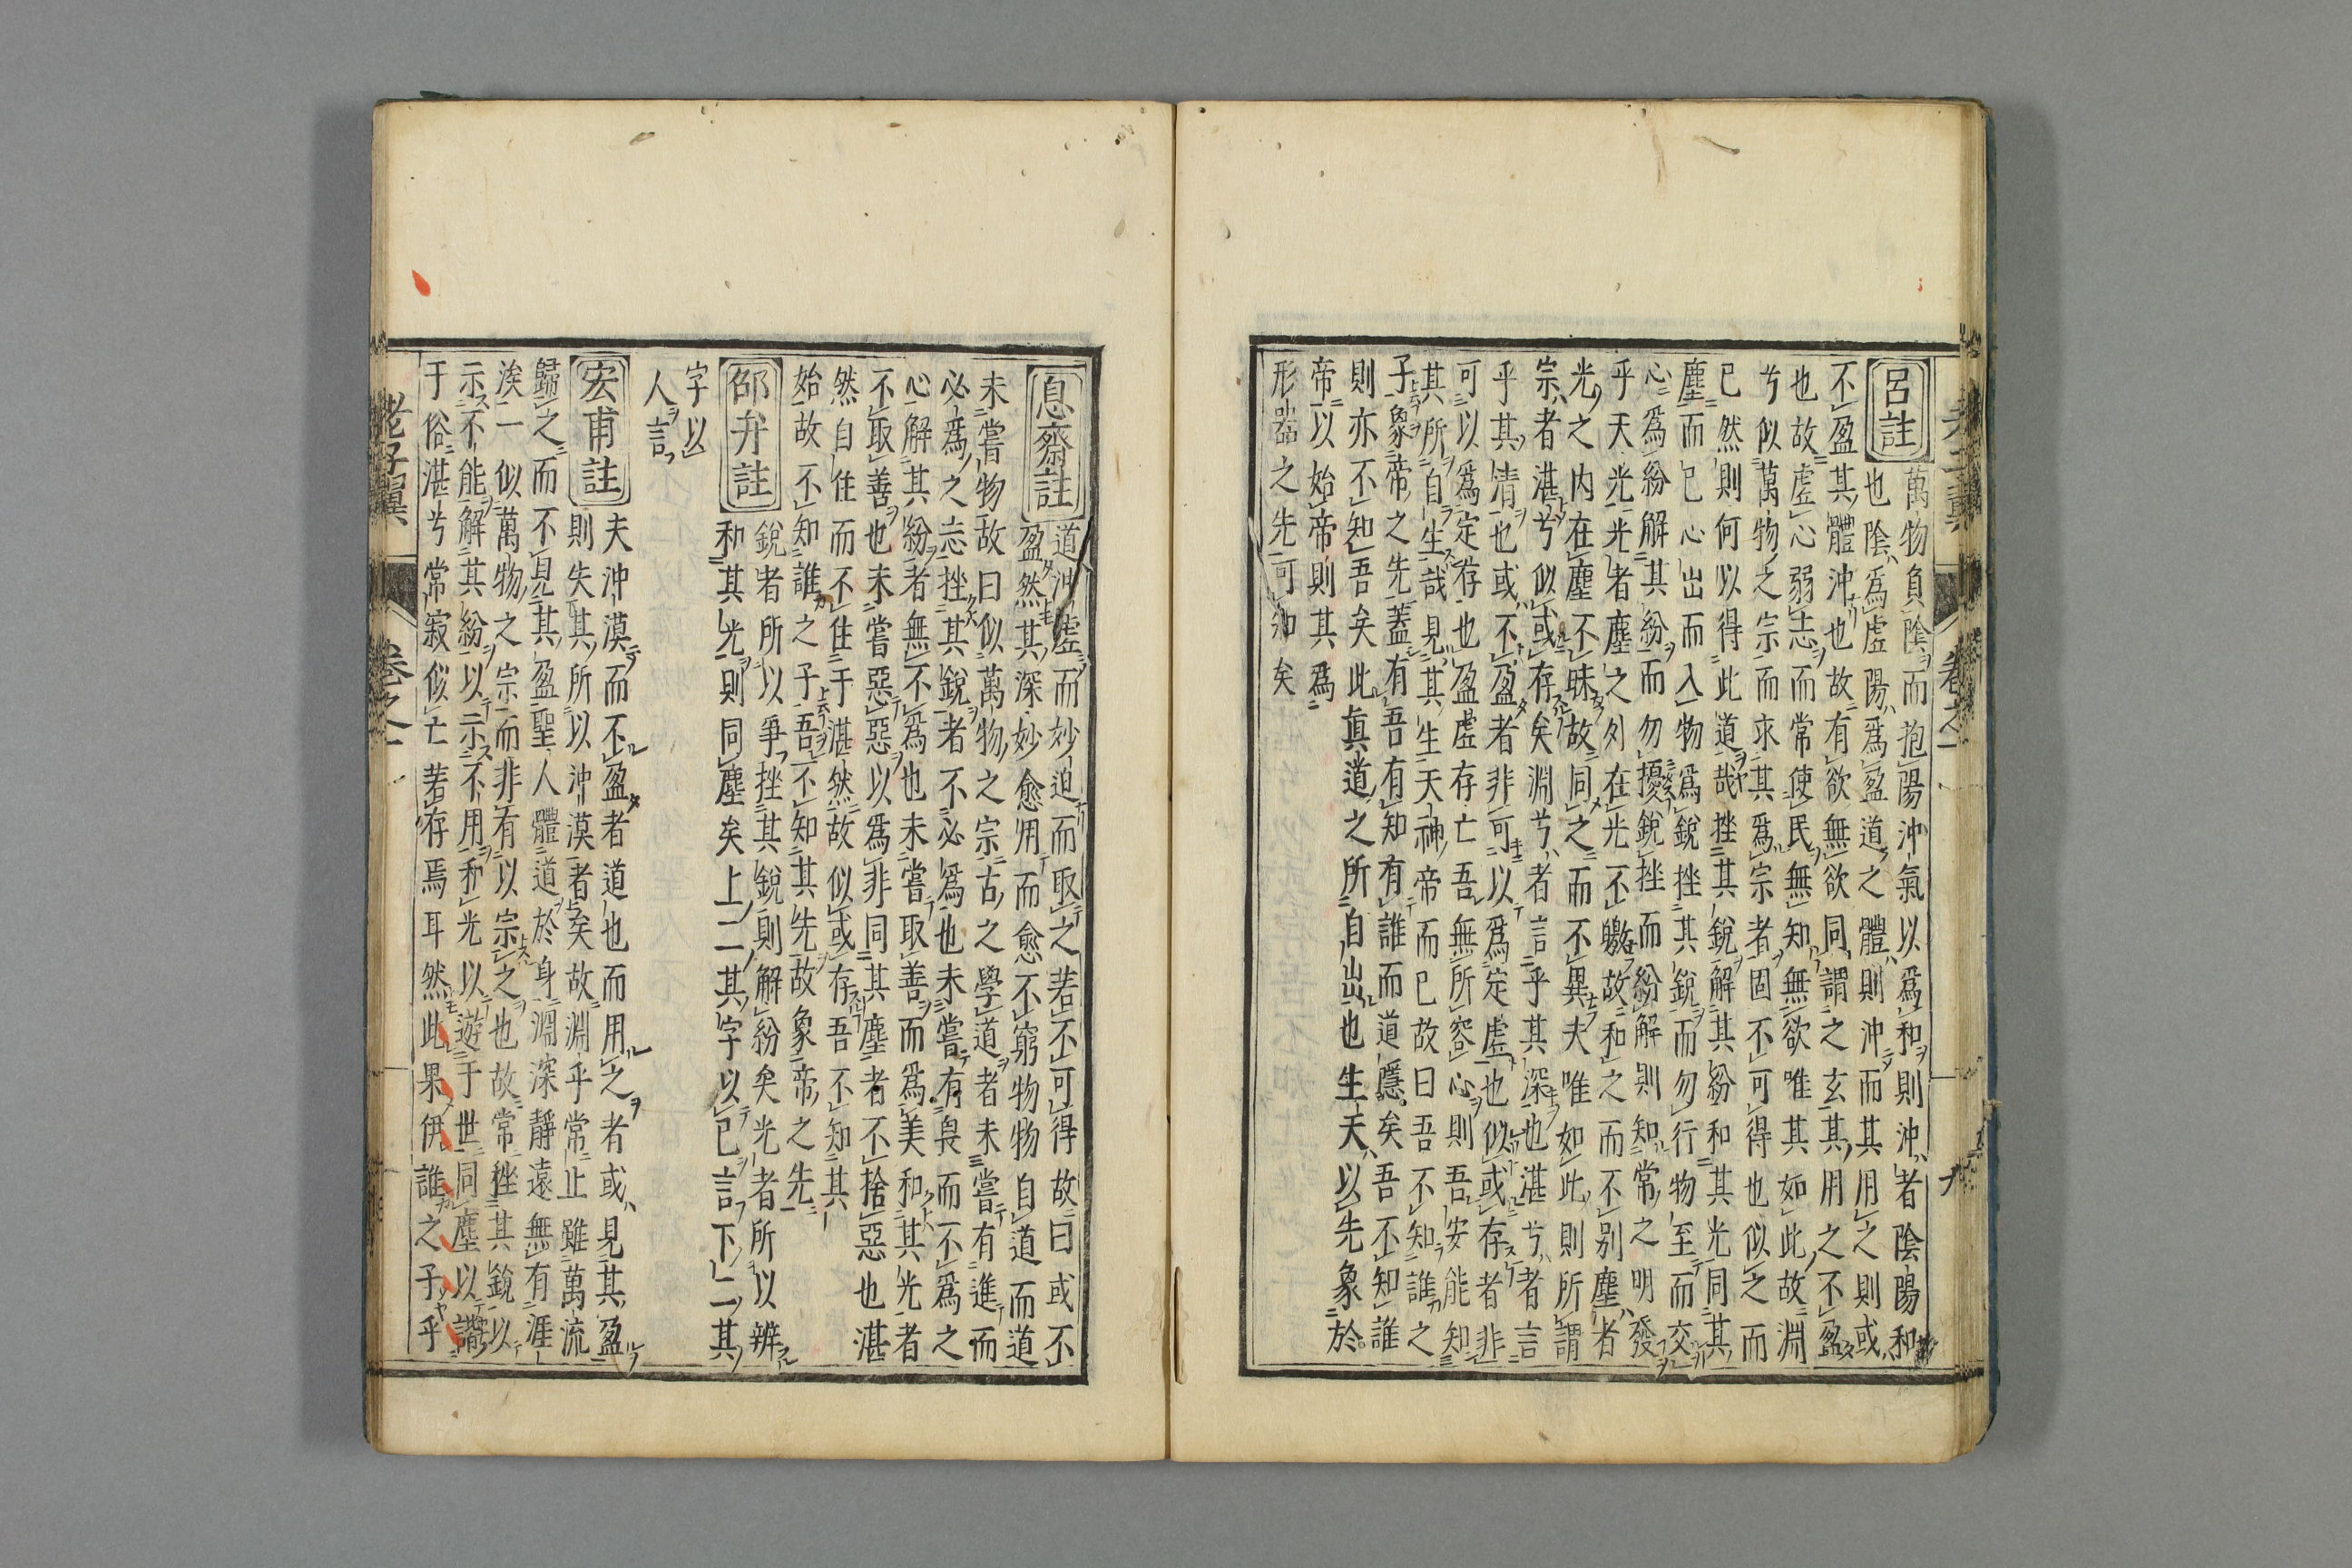 呂註
萬物負陰而抱陽沖氣以爲和則沖者陰陽和
也陰爲虛陽爲盈道之體則沖而其用之則或
不盈其體沖也故有欲無欲同謂之玄其用之不盈
也故虛心弱志而常使民無知無欲唯其如此故淵
兮似萬物之宗而求其爲宗者固不可得也似之而
已然則何以得此道哉挫其銳解其紛和其光同其
塵而已心出而入物爲銳挫其銳而勿行物至而交
心爲紛解其紛而勿擾銳挫而紛解則知常之明發
乎天光光者塵之外在光不皦故和之而不別塵者
光之内在塵不昧故同之而不異夫唯如此則所謂
宗者湛兮似或存矣淵兮者言乎其深也湛兮者言
乎其清也或不盈者非可以爲定虛也似或存者非
可以爲定存也盈虛存亡吾無所容心則吾安能知
其所自生哉見其生天神帝而已故曰吾不知誰之
子象帝之先蓋有吾有知有誰而道隱矣吾不知誰
則亦不知吾矣此眞道之所自出也生天以先象於
帝以始帝則其爲
形器之先可知矣
老子翼 卷之一 九
息齋註
道沖虛而妙迫而取之若不可得故曰或不
盈然其深妙愈用而愈不窮物物自道而道
未嘗物故曰似萬物之宗古之學道者未嘗有進而
必爲之志挫其銳者不必爲也未嘗有與而不爲之
心解其紛者無不爲也未嘗取善而爲美和其光者
不取善也未嘗惡惡以爲非同其塵者不捨惡也湛
然自住而不住于湛然故似或存吾不知其
始故不知誰之子吾不知其先故象帝之先
邵弁註
銳者所以爭挫其銳則解紛矣光者所以辨
和其光則同塵矣上二其字以已言下二其
字以
人言
宏甫註
夫沖漠而不盈者道也而用之者或見其盈
則失其所以沖漠者矣故淵乎常止雖萬流
歸之而不見其盈聖人體道於身淵深靜遠無有涯
涘一似萬物之宗而非有以宗之也故常挫其銳以
示不能解其紛以示不用和光以遊于世同塵以諧
于俗湛兮常寂似亡若存焉耳然此果伊誰之子乎
老子翼 卷之一